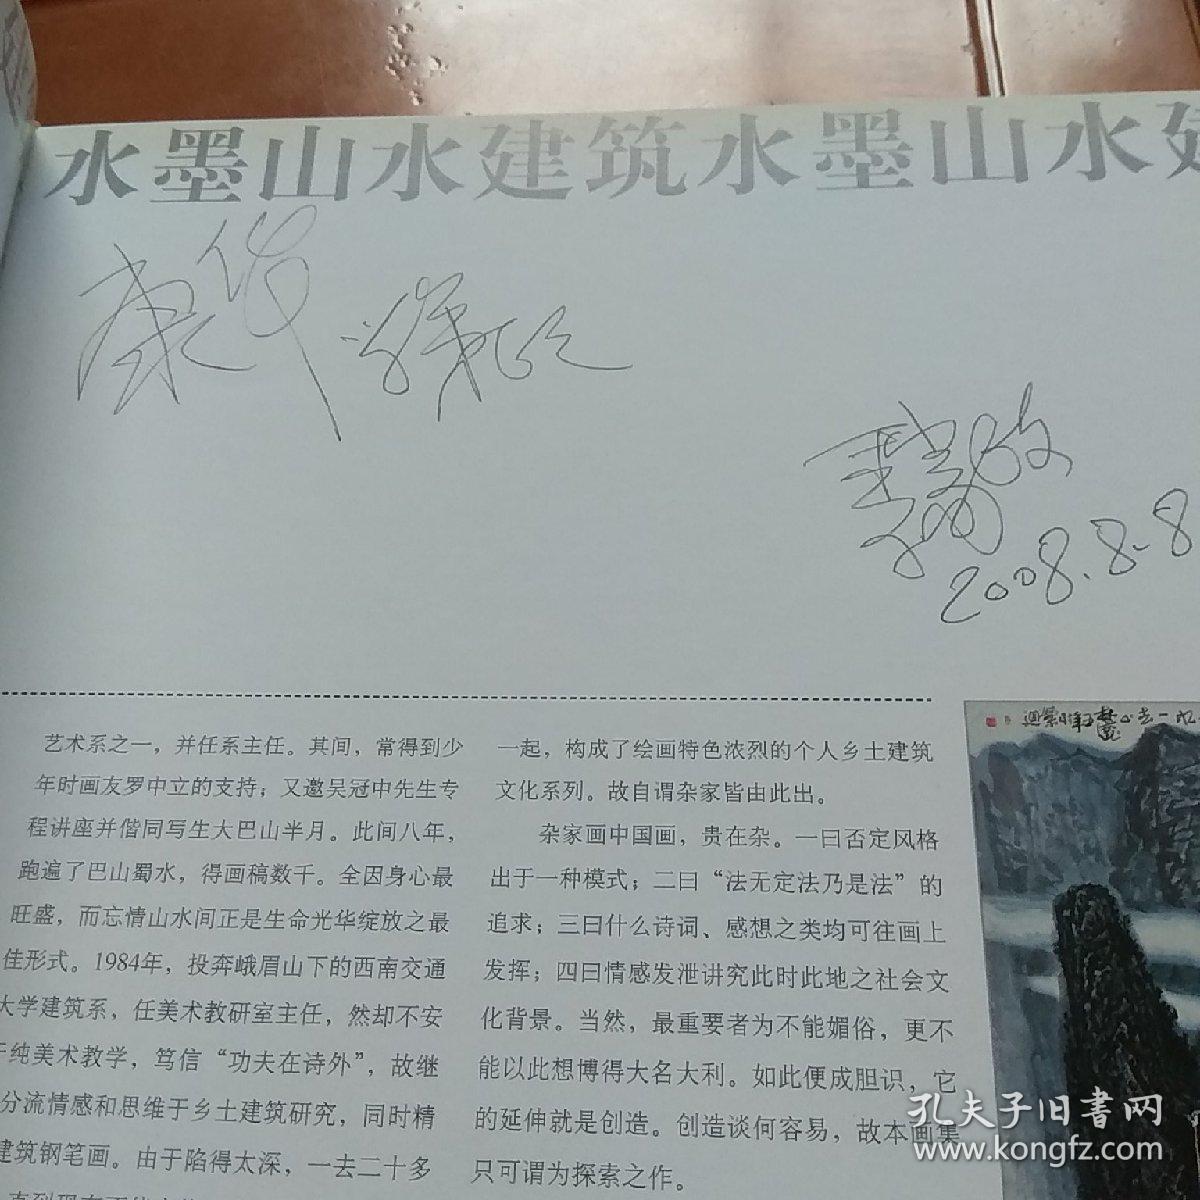 水墨山水建筑水墨山水建
康华
2008.8.8
艺术系之一，并任系主任。其间，常得到少
年时画友罗中立的支持；又邀吴冠中先生专
程讲座并偕同写生大巴山半月。此间八年，
跑遍了巴山蜀水，得画稿数千。全因身心最
旺盛，而忘情山水间正是生命光华绽放之最
佳形式。1984年，投奔峨眉山下的西南交通
大学建筑系，任美术教研室主任，然却不安
于纯美术教学，笃信“功夫在诗外”，故继
分流情感和思维于乡土建筑研究，同时精
建筑钢笔画。由于陷得太深，一去二十多
一起，构成了绘画特色浓烈的个人乡土建筑
文化系列。故自谓杂家皆由此出。
杂家画中国画，贵在杂。一曰否定风格
出于一种模式；二曰“法无定法乃是法”的
追求；三曰什么诗词、感想之类均可往画上
发挥；四曰情感发泄讲究此时此地之社会文
化背景。当然，最重要者为不能媚俗，更不
能以此想博得大名大利。如此便成胆识，它
的延伸就是创造。创造谈何容易，故本画集
只可谓为探索之作。
孔夫子旧书网
www.kongfz.com